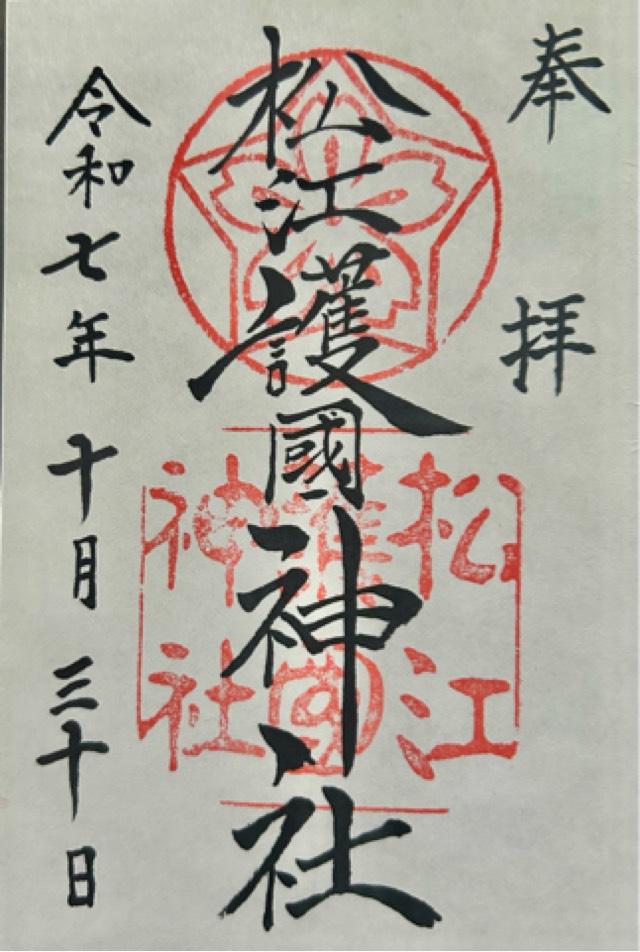 奉拝
松江護國神社
松江
護國
神社
令和七年十月三十日